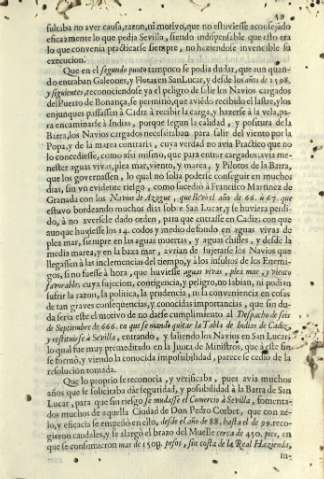 sultaba no aver causa, razon, ni motivo, que no estuviesse aconsejado
eficazmente lo que pedia Sevilla, siendo indispensable que esto era
lo que convenia practicarse siempre, no haziendose invencible su
execucion.
Que en el segundo punto tampoco se podia dudar, que aun quan-
do entraban Galeones, y Flotas en San Lucar, y desde los años de 1598,
y siguientes, reconociendose ya el peligro de salir los Navios cargados
del Puerto de Bonança, se permitio, que aviédo recibido el lastre, y los
enjunques passassen à Cadiz à recibir la carga, y hazerse à la vela, pa-
ra encaminarse à Indias, porque segun la calidad, y postura de la
Barra, los Navios cargados necesitaban para salir del viento por la
Popa, y de la marea contraria, cuya verdad no avia Practico que no
lo concediesse, como assi mismo, que para entrar cargados, avia me-
nester aguas vivas, plea mar, viento, y marea, y Pilotos de la Barra,
que los governassen, lo qual no solia poderse conseguir en muchos
dias, sin vn evidente riesgo, como sucediò à Francisco Martinez de
Granada con los Navios de Azogue, que llevò el año de 66. ù 67. que
estuvo bordeando muchos dias sobre San Lucar, y se huviera perdi-
do, à no aversele dado orden, para que entrasse en Cadiz; con que
aunque huviesse los 14. codos y medio de fondo en aguas vivas de
plea mar, siempre en las aguas muertas, y aguas chifles, y desde la
media marea, y en la baxa mar, avian de sujetarse los Navios que
llegassen à las inclemencias del tiempo, y à los insultos de los Enemi-
gos, si no fuesse à hora, que huviesse aguas vivas, plea mar, y viento
favorables cuya sujecion, contigencia, y peligro, no fabian, ni podian
sufrir la razon, la politica, la prudencia, ni la conveniencia en cosas
de tan graves consequencias, y conocidas importancias, que sin du-
da seria este el motivo de no darse cumplimiento al Despacho de seis
de Septiembre de 666. en que se mandò quitar la Tabla de Indias de Cadiz,
y restituirse à Sevilla, entrando, y saliendo los Navios en San Lucar,
lo qual fue muy premeditado en la Junta de Ministros, que à este fin
se formò, y viendo la conocida impossibilidad, parece le cedio de la
resolucion tomada.
Que lo proprio se reconocia, y verificaba, pues avia muchos
años que se solicitaba dàr seguridad, y possibilidad à la Barra de San
Lucar, para que sin riesgo se mudasse el Comercio à Sevilla, fomenta-
dos muchos de aquella Ciudad de Don Pedro Corbet, que con ze-
lo, y eficacia se empeñò en ello, desde el año de 88, hasta el de 92. reco-
gieron caudales, y se alargò el brazo del Muelle cerca de 450. pies, en
que se consumieron mas de 150y. pesos, sin costa de la Real Hazienda,